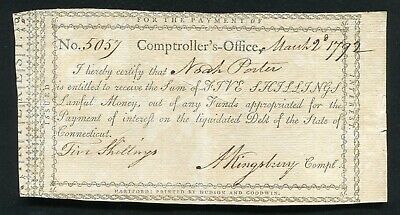 FOR THE PAYMENT OF
No. 5057 Comptroller's-Office, March 2d 1792
I hereby certify that Noah Porter
is entitled to receive the Sum of FIVE SHILLINGS
Lawful Money, out of any Funds appropriated for the
Payment of interest on the liquidated Debt of the State of
Connecticut.
Five Shillings A Kingsbury Compt.
HARTFORD: PRINTED BY HUDSON AND GOODWIN.